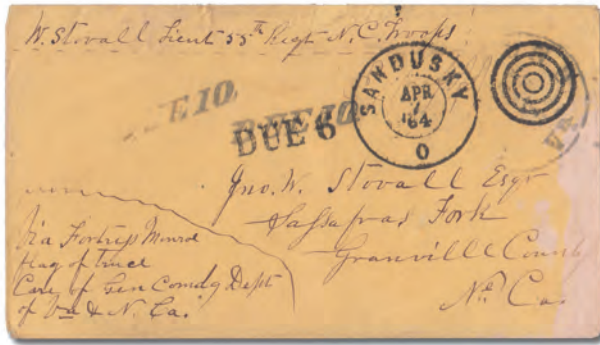 W. Stovall Lieut 55th Regt N.C. Troops
DUE 10
DUE 10
DUE 6
SANDUSKY
APR
64
O
VA
Jno. W. Stovall Esqr
Sassafras Fork
Granville County
No Ca.
Via Fortress Monroe
flag of truce
Care of Gen Comdg Dept
of Va & N. Ca.